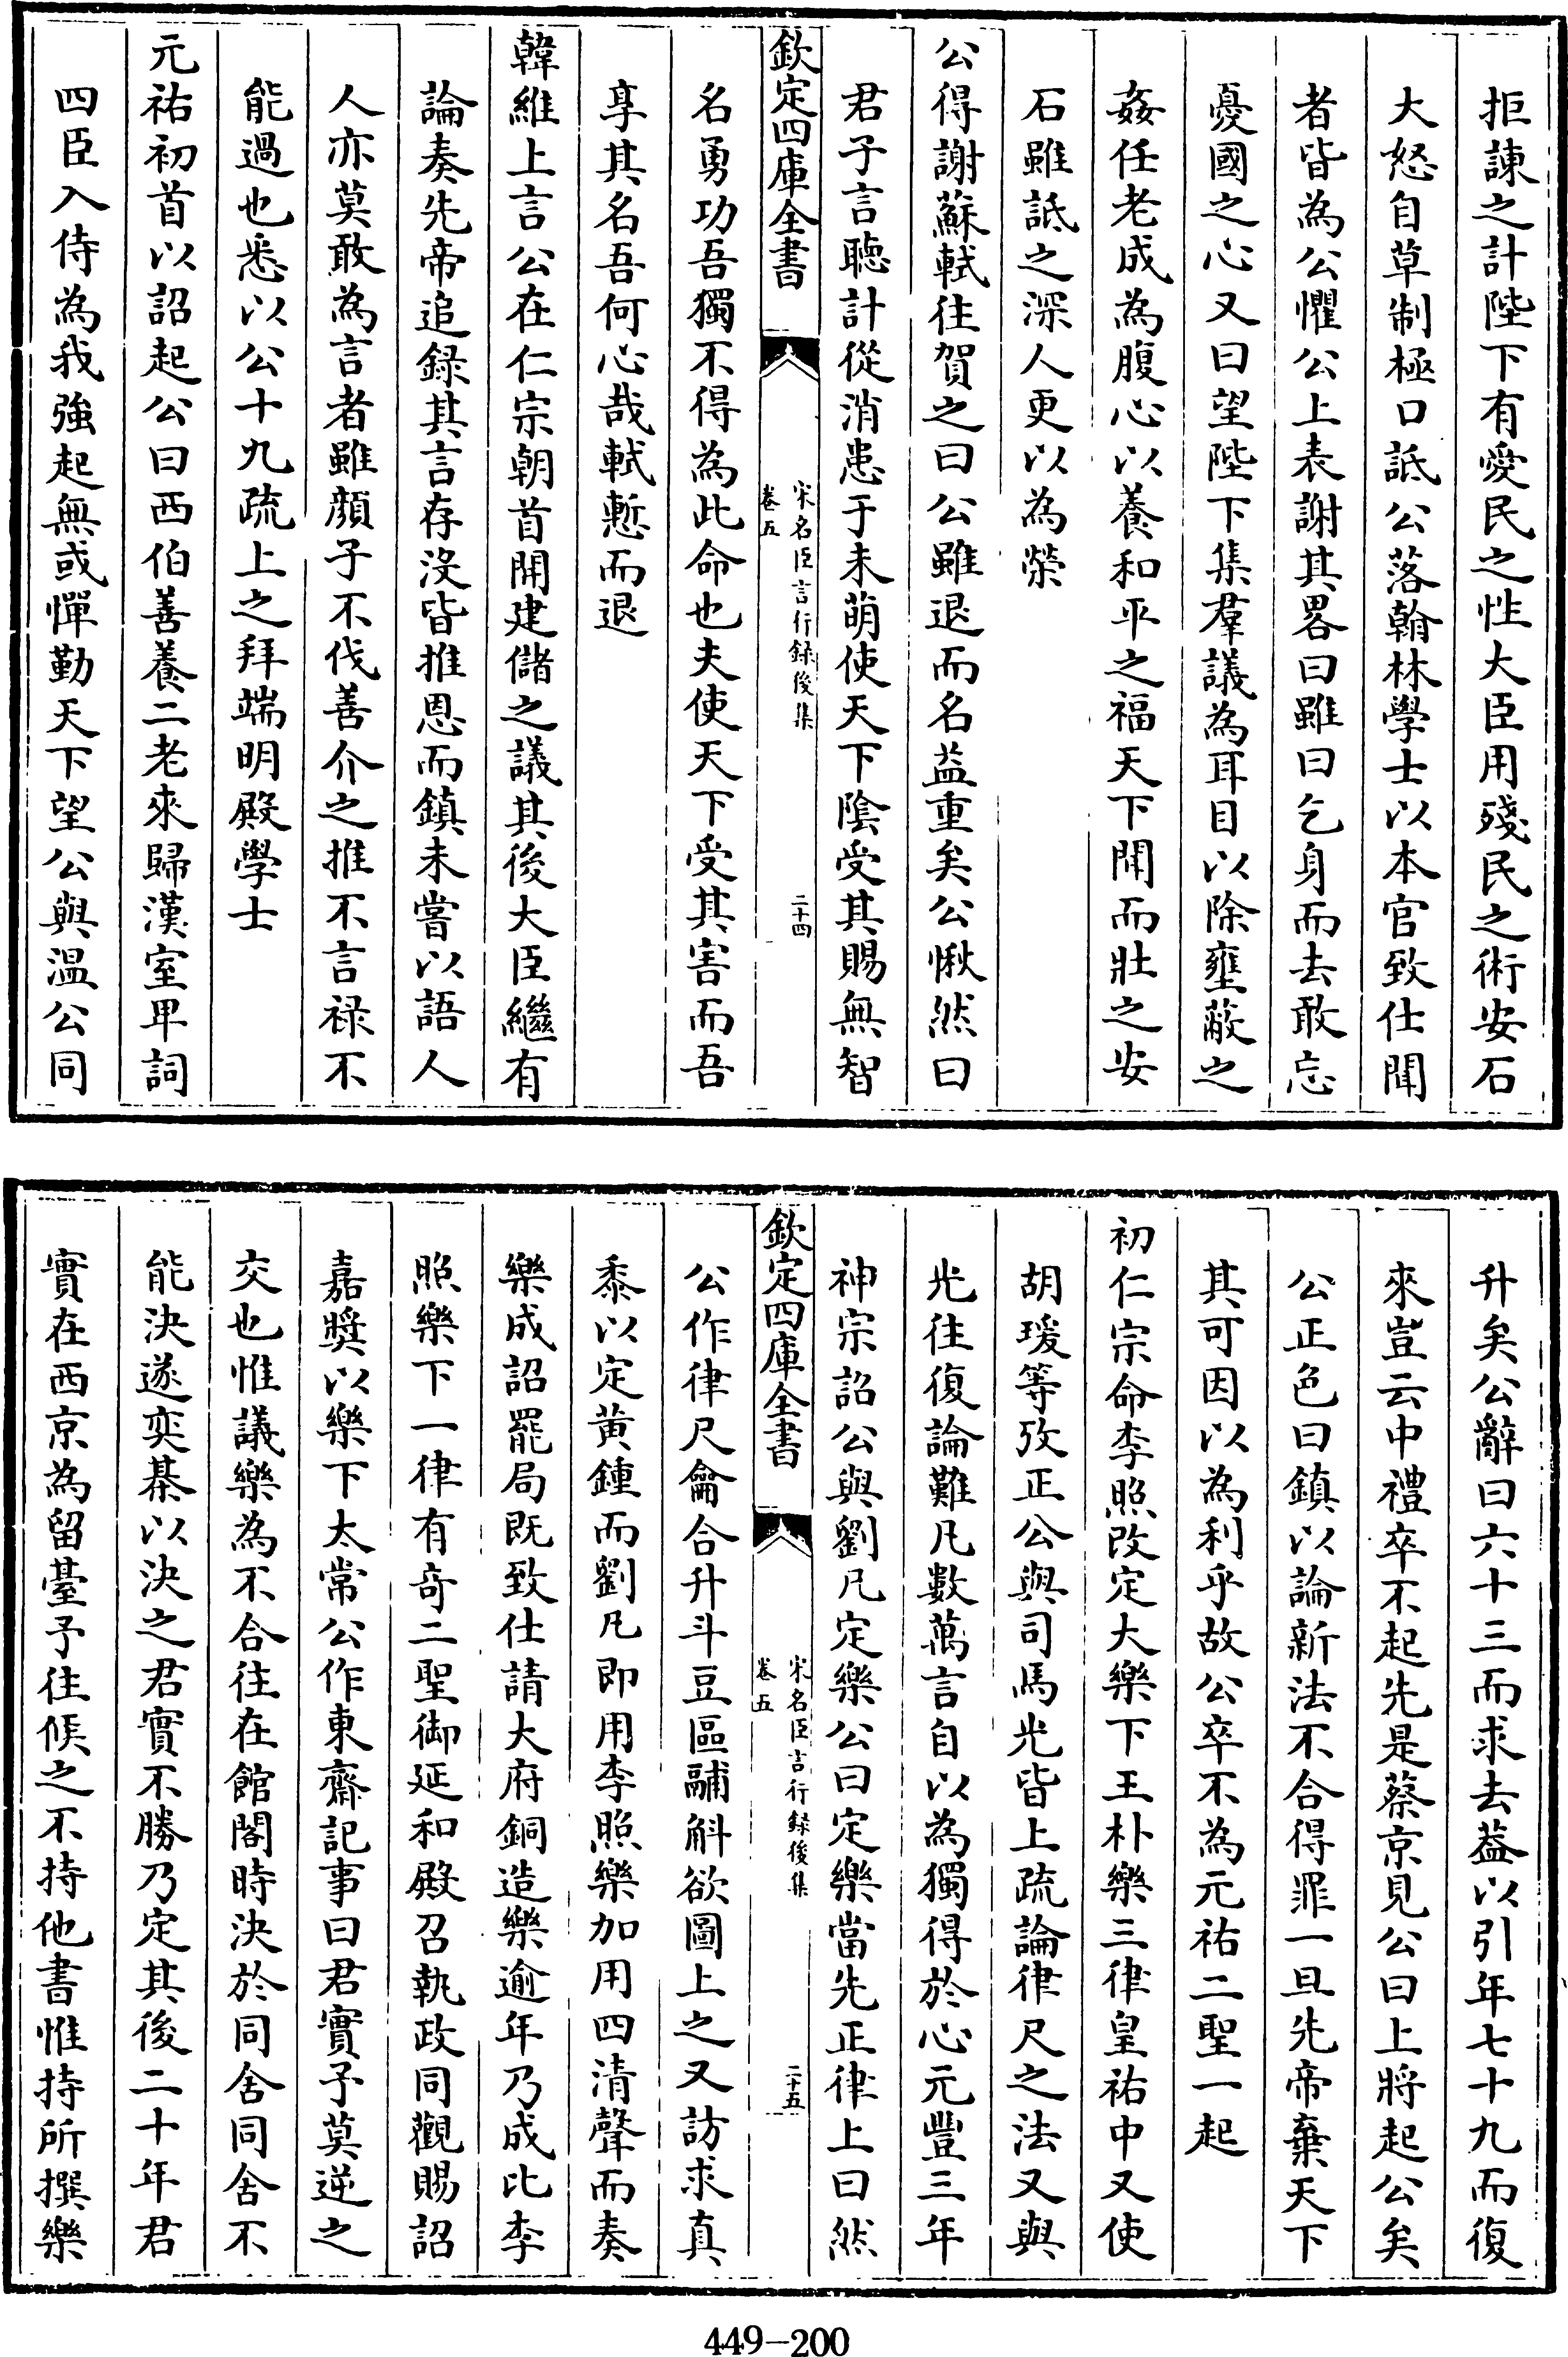 拒諫之計陛下有愛民之性大臣用殘民之術安石
大怒自草制極口詆公落翰林學士以本官致仕聞
者皆為公懼公上表謝其畧曰雖曰乞身而去敢忘
憂國之心又曰望陛下集羣議為耳目以除壅蔽之
姦任老成為腹心以養和平之福天下聞而壯之安
石雖詆之深人更以為榮
公得謝蘇軾往賀之曰公雖退而名益重矣公愀然曰
君子言聽計從消患于未萌使天下陰受其賜無智
欽定四庫全書
宋名臣言行錄後集
卷五
二十四
名勇功吾獨不得為此命也夫使天下受其害而吾
享其名吾何心哉軾慙而退
韓維上言公在仁宗朝首開建儲之議其後大臣繼有
論奏先帝追錄其言存沒皆推恩而鎮未嘗以語人
人亦莫敢為言者雖顏子不伐善介之推不言祿不
能過也悉以公十九疏上之拜端明殿學士
元祐初首以詔起公曰西伯善養二老來歸漢室卑詞
四臣入侍為我強起無或憚勤天下望公與溫公同
升矣公辭曰六十三而求去葢以引年七十九而復
來豈云中禮卒不起先是蔡京見公曰上將起公矣
公正色曰鎮以論新法不合得罪一旦先帝棄天下
其可因以為利乎故公卒不為元祐二聖一起
初仁宗命李照改定大樂下王朴樂三律皇祐中又使
胡瑗等攷正公與司馬光皆上疏論律尺之法又與
光往復論難凡數萬言自以為獨得於心元豐三年
神宗詔公與劉几定樂公曰定樂當先正律上曰然
欽定四庫全書
宋名臣言行錄後集
卷五
二十五
公作律尺龠合升斗豆區鬴斛欲圖上之又訪求真
黍以定黃鍾而劉几即用李照樂加用四清聲而奏
樂成詔罷局既致仕請大府銅造樂逾年乃成比李
照樂下一律有奇二聖御延和殿召執政同觀賜詔
嘉奬以樂下太常公作東齋記事曰君實予莫逆之
交也惟議樂為不合往在館閣時決於同舍同舍不
能決遂奕棊以決之君實不勝乃定其後二十年君
實在西京為留臺予往候之不持他書惟持所撰樂
449-200